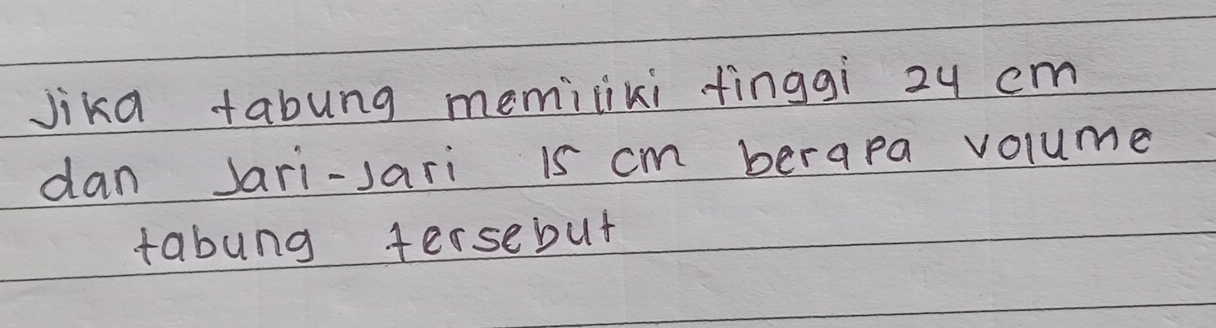 Jika tabung memiliki tinggi 24 cm
dan Jari-Jari 15 cm berapa volume
tabung tersebut